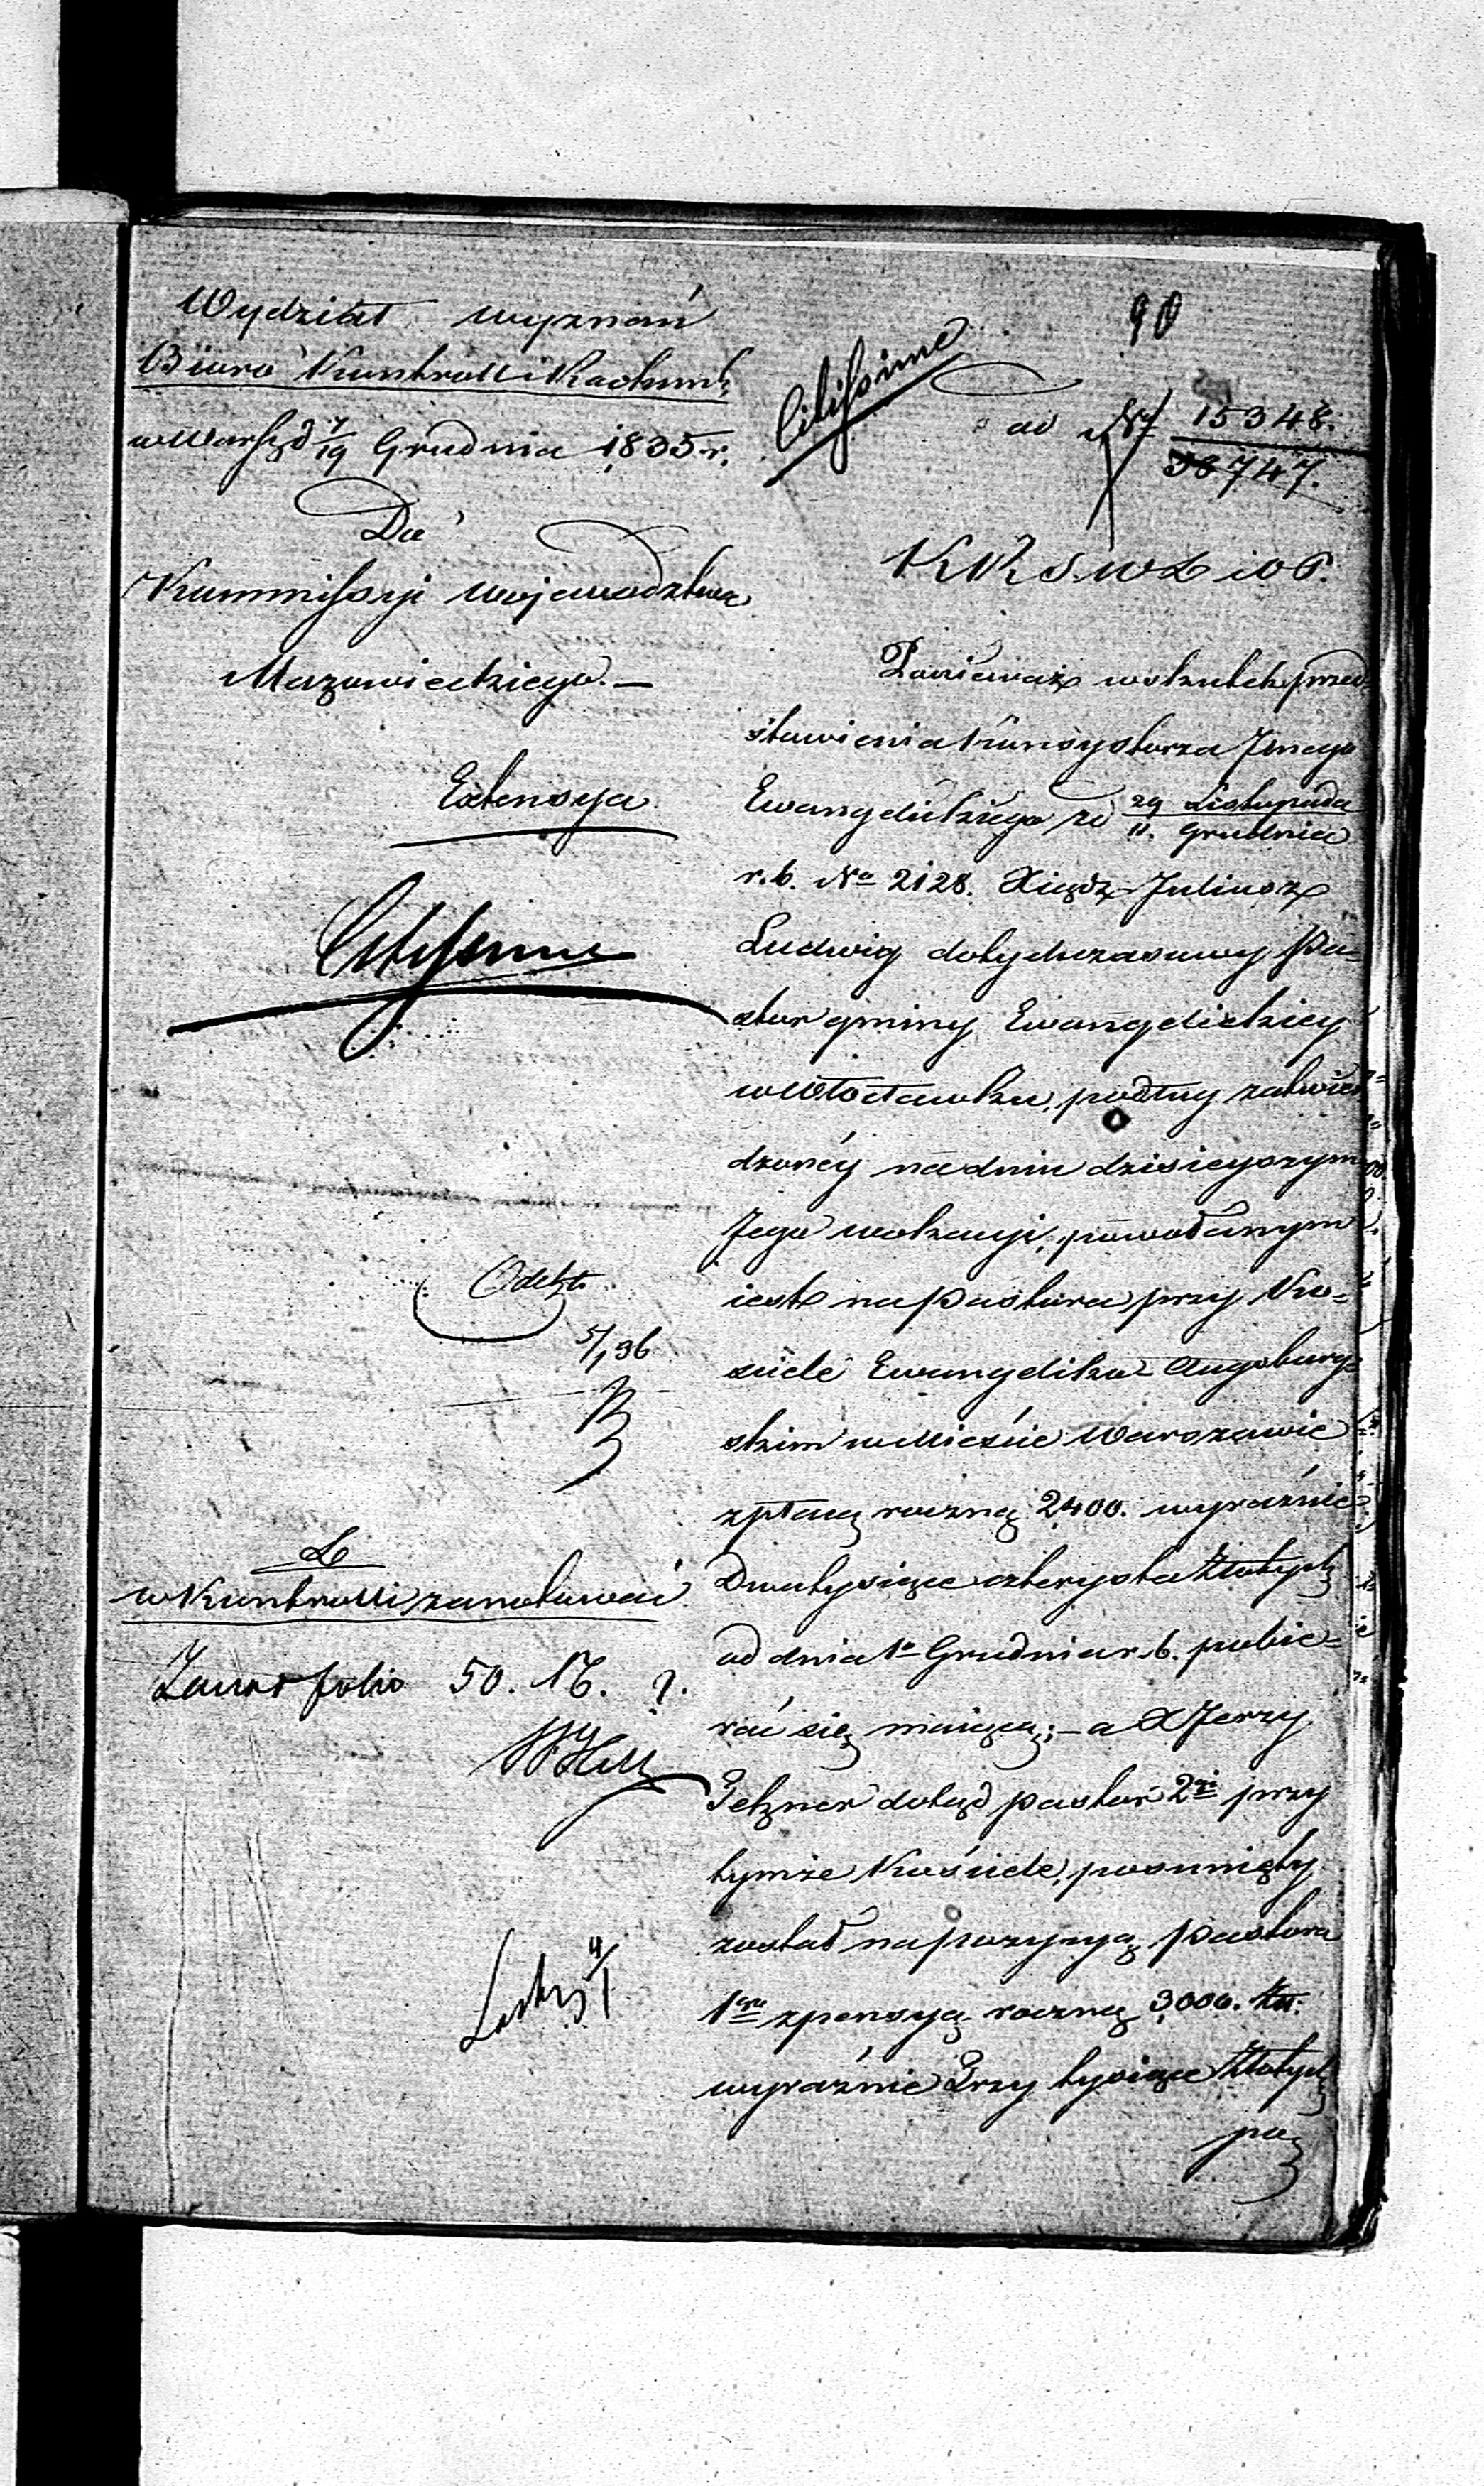 90
Wydział wyznań
Biuro Kontrolli Rachunk.
w Warsz. d 7/19 Grudnia 1835 r.
Citissime
ad N 15348.
38747.
Do
Kommissyi Województwa
Mazowieckiego. —
Extensya
Citissime
Odebr.
5/1 36
w Kontrolli zanotować
folio 50. 16.
4/1
K R S W D i O P.
Ponieważ wskutek przed-
stawienia Konsystorza Jnego
Ewangelickiego z d 29 Listopada / 11. Grudnia
r. b. No 2128. Xiądz Juliusz
Ludwig dotychczasowy Pa=
stor gminy Ewangelickiey
w Włocławku, podług zatwier
dzonéy na dniu dzisieyszym
Jego wokacyi, powołanym
iest na Pastora przy Ko=
ściele Ewangelicko Augsburg=
skim w Mieście Warszawie
z płacą roczną 2400. wyraźnie
Dwa tysiące czterysta Złotych
od dnia 1o Grudnia r. b. pobie=
rać się maiącą; — a X Jerzy
Tetzner dotąd pastor 2gi przy
tymże Kościele, posunięty
został na pozycyą Pastora
1go z pensyą roczną 3000. złt.
wyraźnie Trzy tysiące Złotych
po